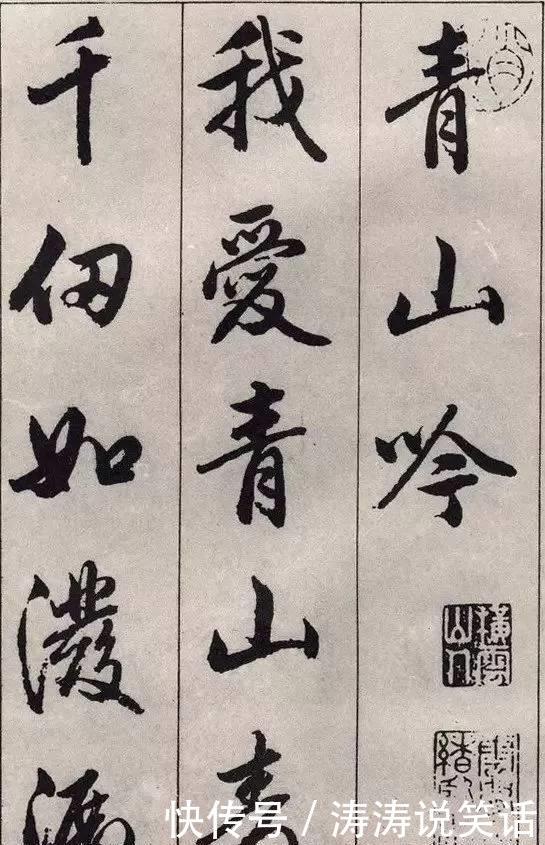 青山吟
我愛青山
千仞如潑
橫雲山人
快传号 / 涛涛说笑话